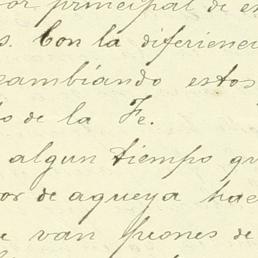 or principal de es
s. Con la diferienc
cambiando estos
o de la Fe.
algun tiempo qu
or de aqueya hac
e van peones de